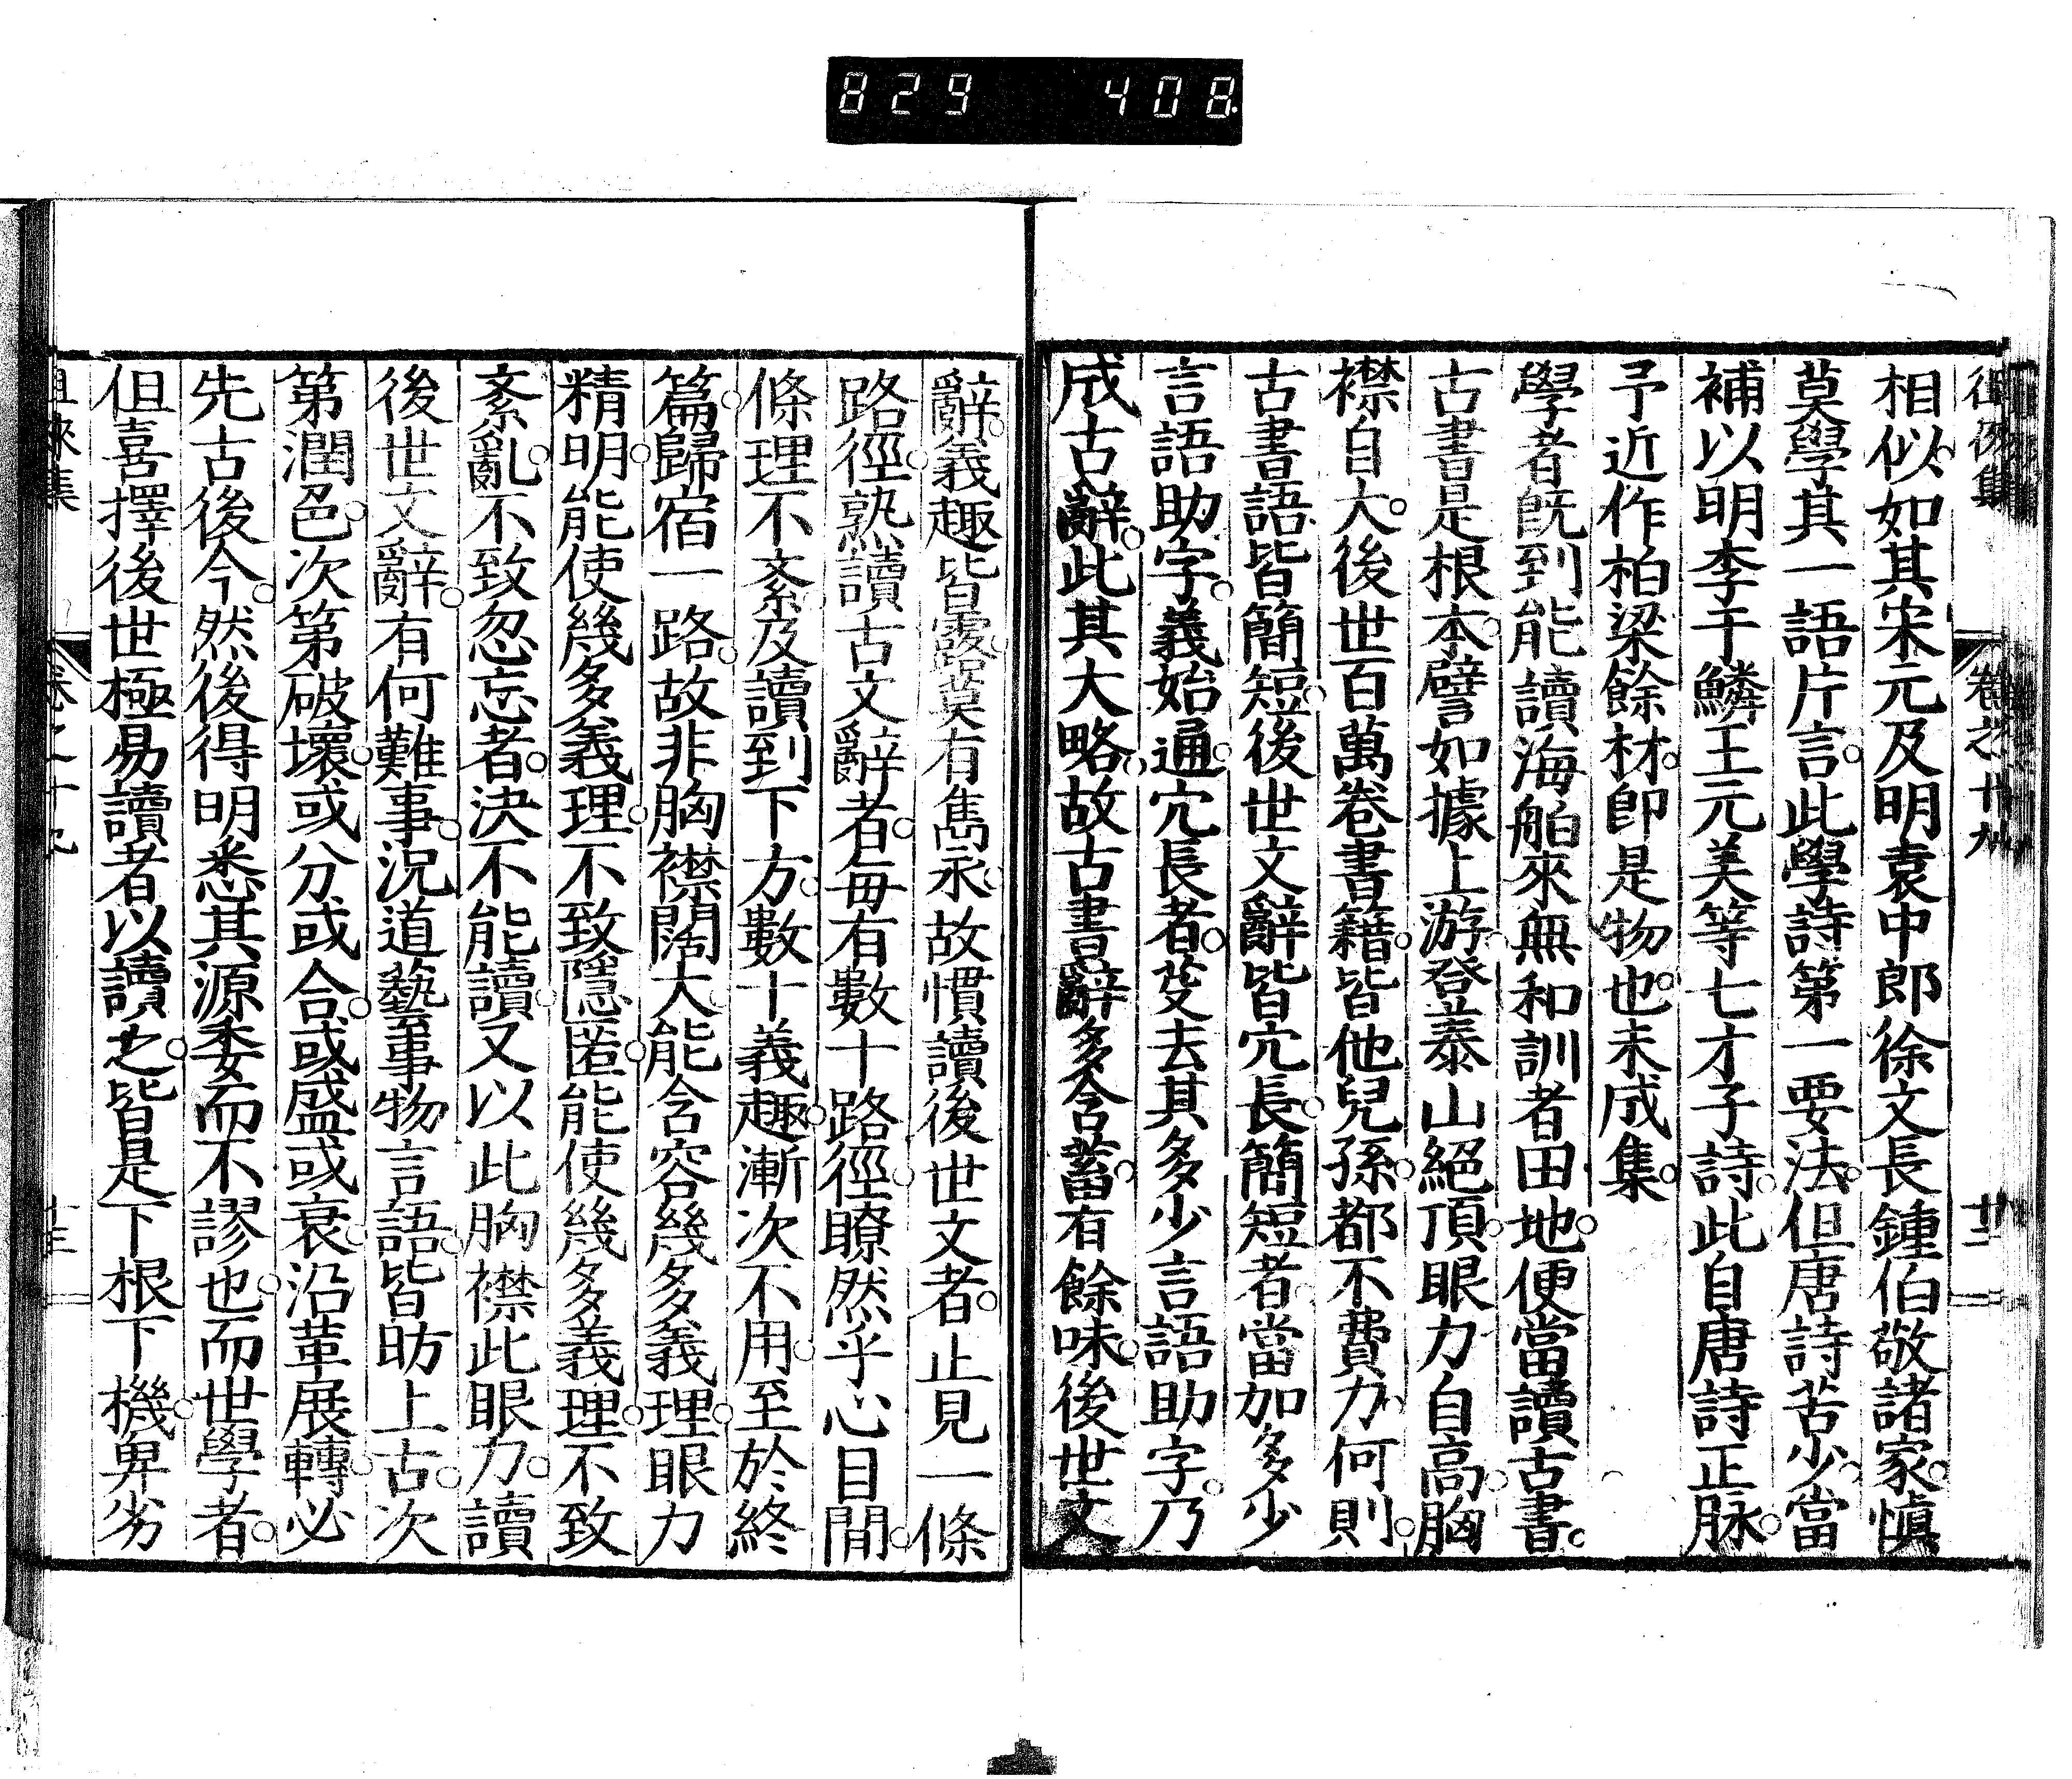 829 408
徂徠集 卷之十九 廿二
相似。如其宋元及明袁中郎徐文長鍾伯敬諸家。愼
莫學其一語片言。此學詩第一要法。但唐詩苦少。當
補以明李于鱗王元美等七才子詩。此自唐詩正脉。
予近作柏梁餘材。卽是物也。未成集。
學者旣到能讀海舶來無和訓者田地。便當讀古書。
古書是根本。譬如據上游。登泰山絕頂。眼力自高。胸
襟自大。後世百萬卷書籍。皆他兒孫。都不費力。何則。
古書語皆簡短。後世文辭皆宂長。簡短者。當加多少
言語助字。義始通。宂長者。芟去其多少言語助字。乃
成古辭。此其大略。故古書辭多含蓄。有餘味。後世文
辭。義趣皆露。莫有雋永。故慣讀後世文者。止見一條
路徑。熟讀古文辭者。每有數十路徑。瞭然乎心目閒。
條理不紊。及讀到下方。數十義趣。漸次不用。至於終
篇。歸宿一路。故非胸襟闊大。能含容幾多義理。眼力
精明。能使幾多義理。不致隱匿。能使幾多義理。不致
紊亂。不致忽忘者。決不能讀。又以此胸襟此眼力。讀
後世文辭。有何難事。況道藝事物言語。皆昉上古。次
第潤色。次第破壞。或分或合。或盛或衰。沿革展轉。必
先古後今。然後得明悉其源委而不謬也。而世學者。
但喜擇後世極易讀者以讀之。皆是下根下機。卑劣
徂徠集 卷之十九 廿三